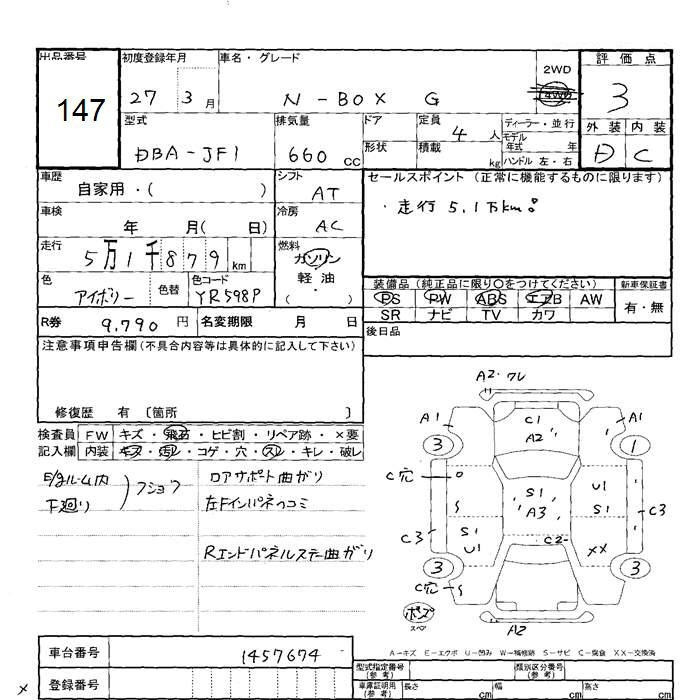 出品番号
147
初度登録年月
27 3 月
車名・グレード
N-BOX G
2WD
4WD
評価点
3
外装 内装
D C
型式
DBA-JF1
排気量
660 cc
ドア
形状
定員
4 人
積載
kg
ディーラー・並行
モデル
年式 年
ハンドル 左・右
車歴
自家用・( )
シフト
AT
セールスポイント (正常に機能するものに限ります)
・走行 5.1万km!
車検
年 月( 日)
冷房
AC
走行
5万1千879 km
燃料
ガソリン
軽油
( ・ )
色
アイボリー
色替
色コード
YR598P
装備品 (純正品に限り○をつけてください)
PS PW ABS エアB AW
SR ナビ TV カワ
新車保証書
有・無
R券 9,790 円
名変期限 月 日
後日品
注意事項申告欄 (不具合内容等は具体的に記入して下さい)
修復歴 有 〔箇所 〕
検査員
記入欄
FW キズ・飛石・ヒビ割・リペア跡・×要
内装 キズ・汚レ・コゲ・穴・スレ・キレ・破レ
E/gルーム内
下廻り
フショク
ロアサポート曲ガリ
左Fインパネコミ
Rエンドパネルステー曲ガリ
A2・ワレ
A1
C1
A2
A1
3
1
C穴
S1
A3
U1
S1
C3
C3
S1
U1
C2
××
3
3
C穴
A2
スペア
A-キズ E-エクボ U-凹み W-補修跡 S-サビ C-腐食 XX-交換済
車台番号
1457674
登録番号
型式指定番号
(参考)
類別区分番号
(参考)
車庫証明用
(参考)
長さ cm
幅 cm
高さ cm
×